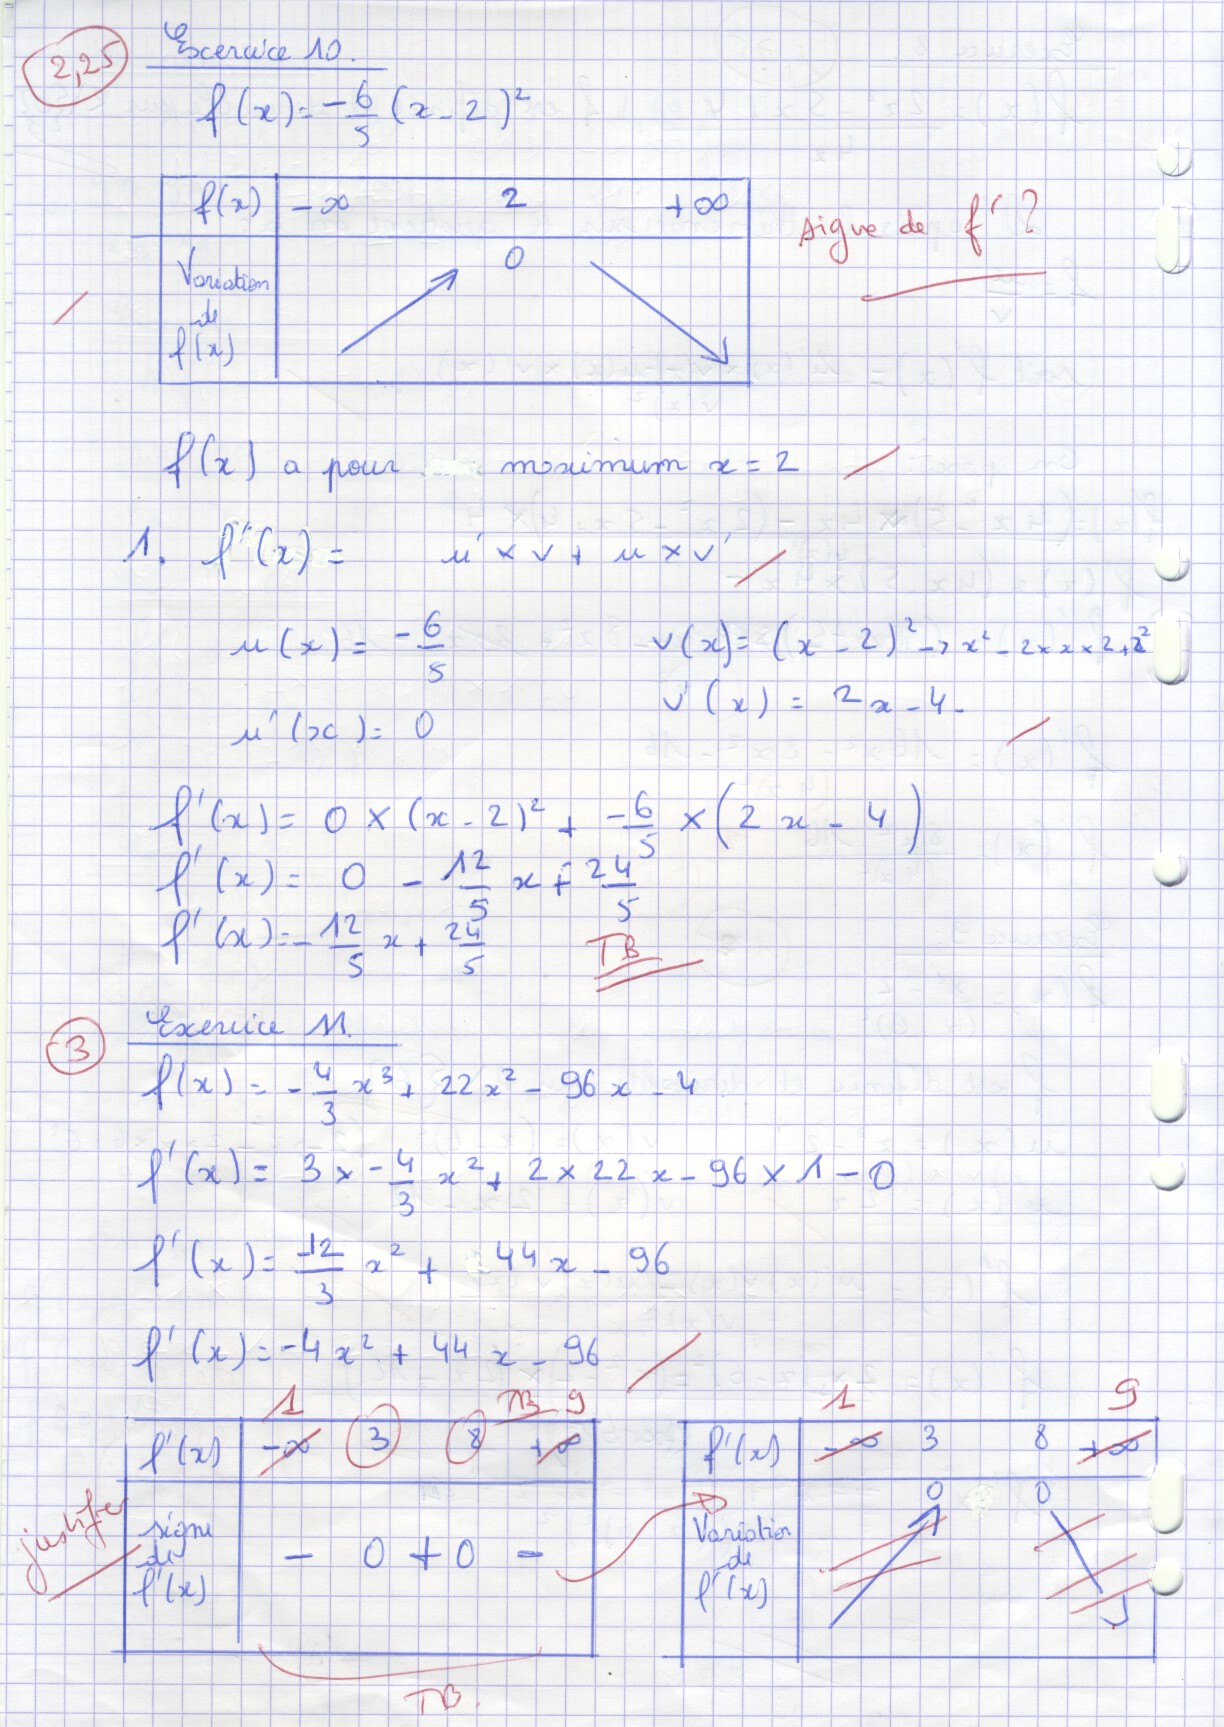 2,25
Exercice 10.
f(x) = -6/5 (x - 2)²
f(x) -∞ 2 +∞
signe de f' ?
Variation de f(x) 0
f(x) a pour maximum x = 2
1. f'(x) = u' × v + u × v'
u(x) = -6/5 v(x) = (x - 2)² → x² - 2 × x × 2 + 2²
u'(x) = 0 v'(x) = 2x - 4.
f'(x) = 0 × (x - 2)² + -6/5 × (2x - 4)
f'(x) = 0 - 12/5 x + 24/5
f'(x) = -12/5 x + 24/5
TB
3
Exercice 11.
f(x) = -4/3 x³ + 22x² - 96x - 4
f'(x) = 3 × -4/3 x² + 2 × 22x - 96 × 1 - 0
f'(x) = -12/3 x² + 44x - 96
f'(x) = -4x² + 44x - 96
1 TB 9
f'(x) -∞ 3 8 +∞
justifier
signe de f'(x) - 0 + 0 -
TB.
1 9
f'(x) -∞ 3 8 +∞
Variation de f'(x) 0 0